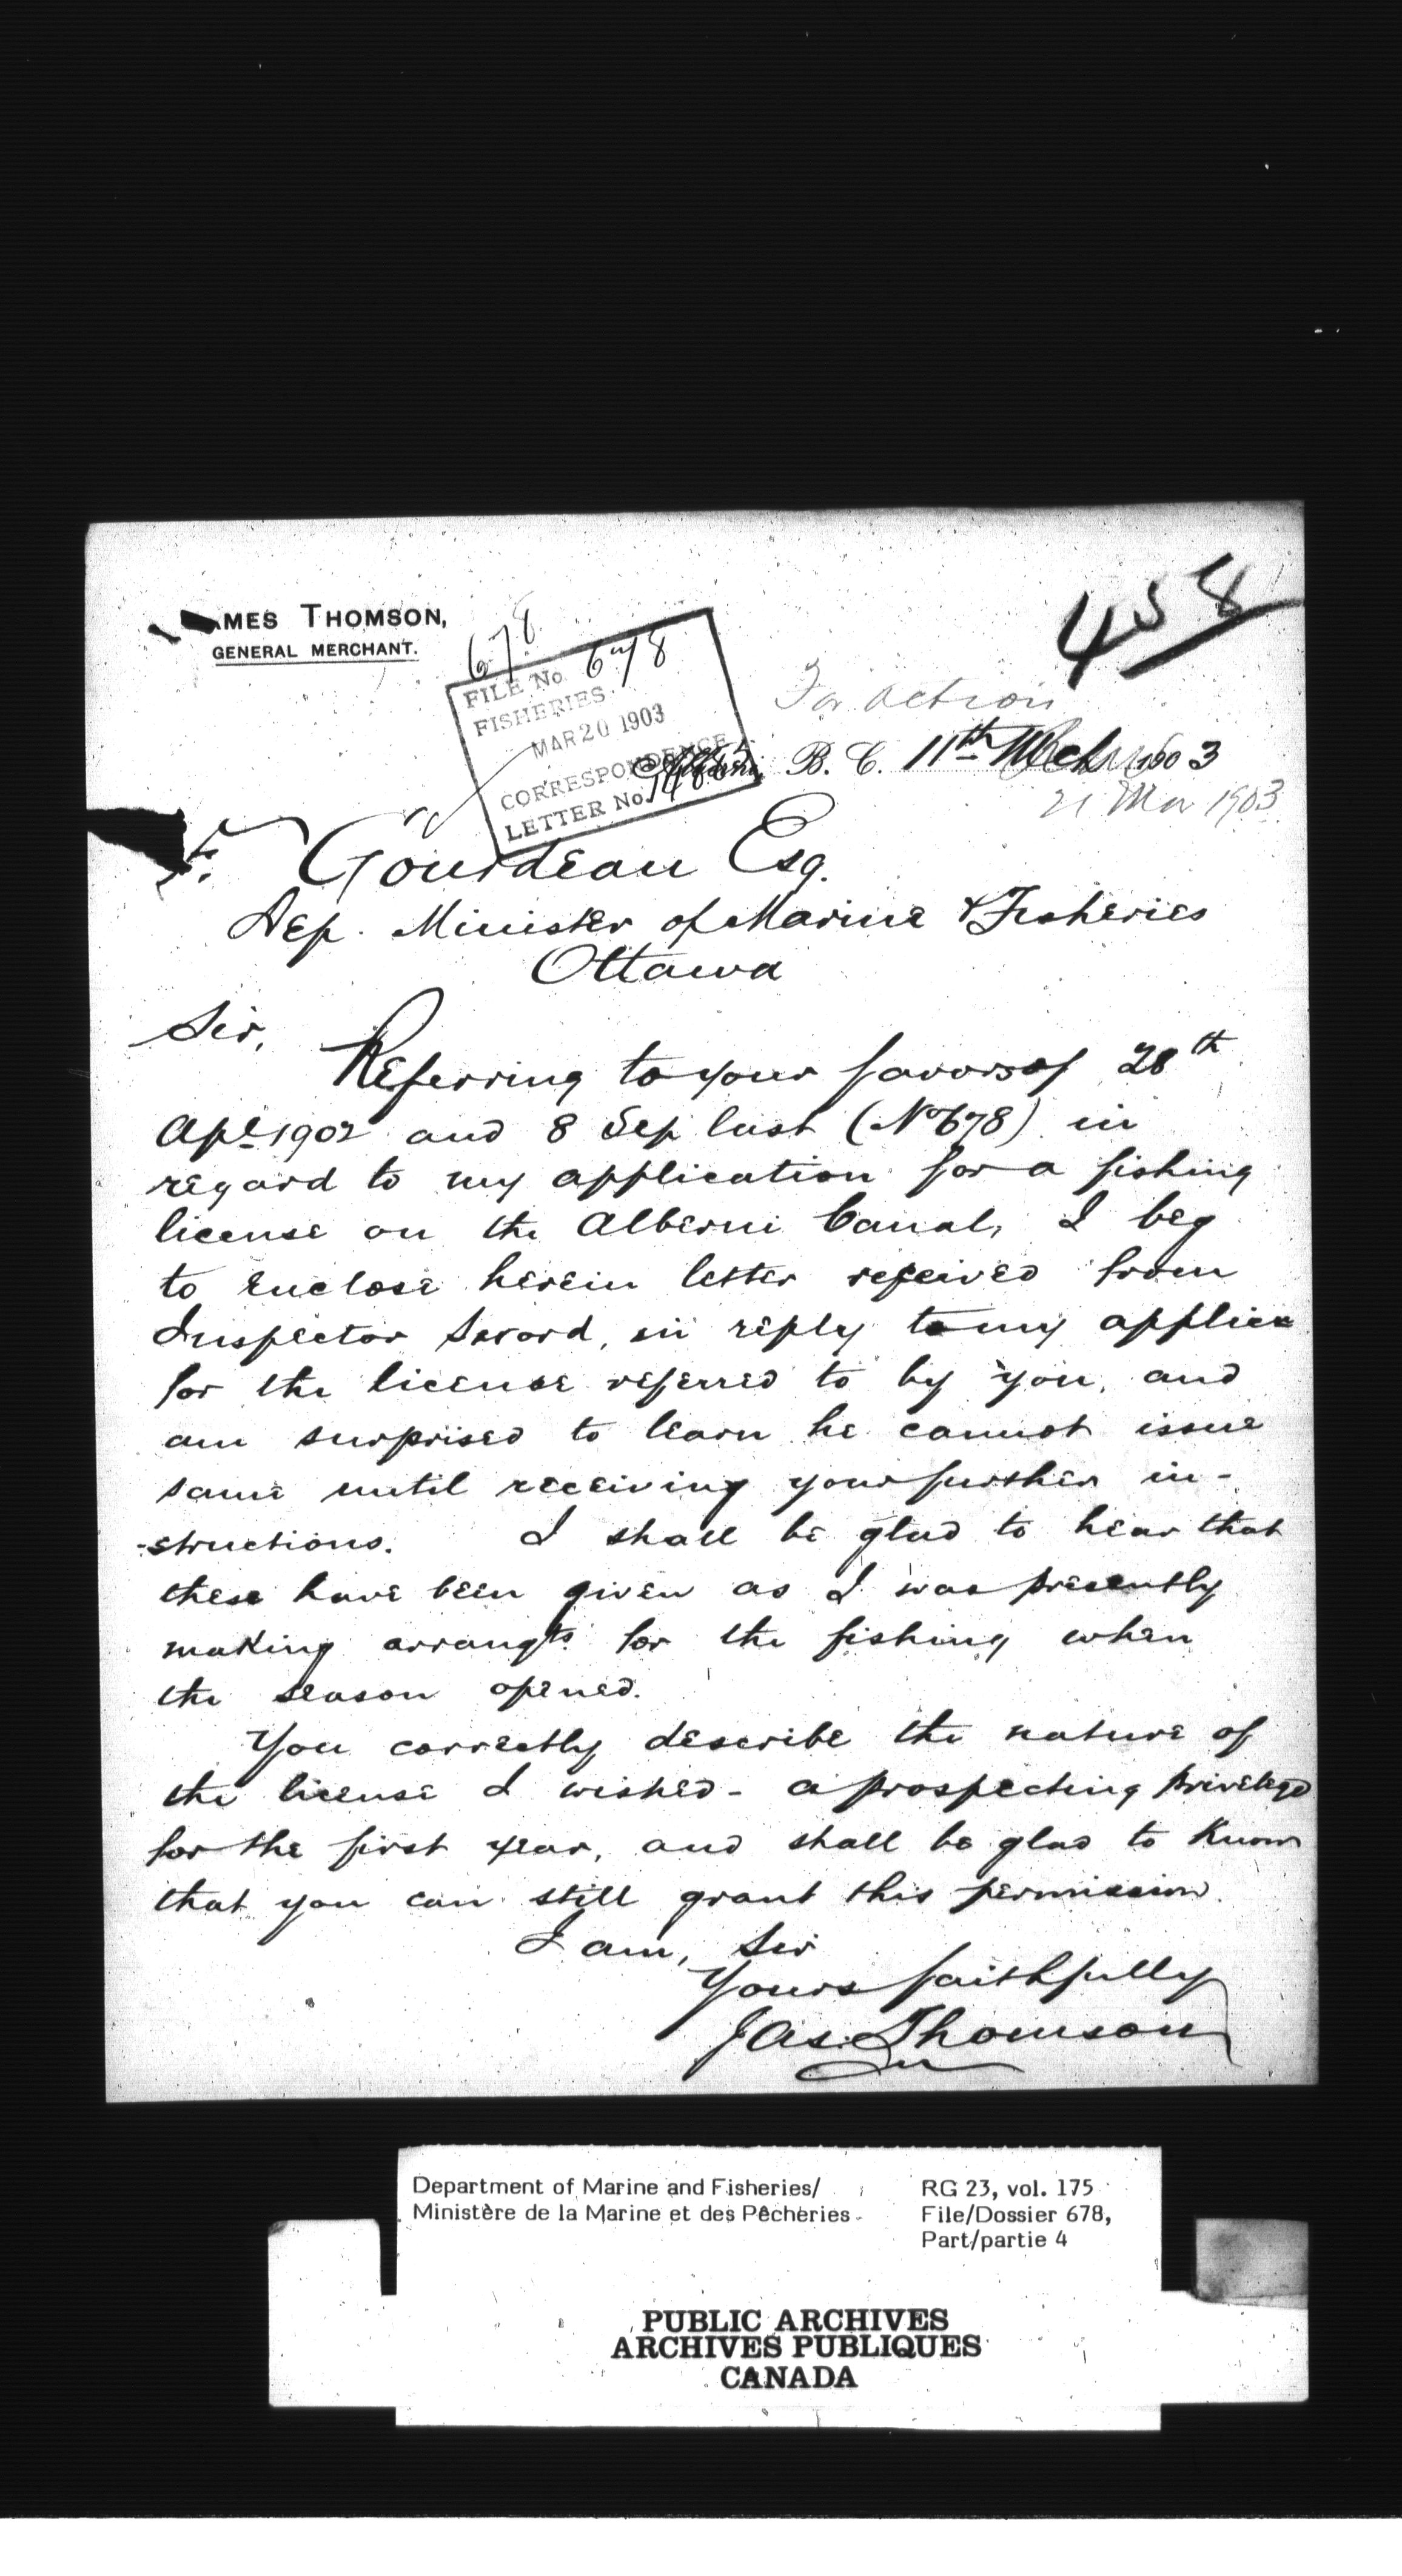 458
MES THOMSON,
GENERAL MERCHANT.
678
FILE No 678
FISHERIES
MAR 20 1903
CORRESPONDENCE
LETTER No.
For action
B. C. 11th Mch 1903
21 Mar 1903
F. Gourdeau Esq.
Dep. Minister of Marine & Fisheries
Ottawa
Sir,
Referring to your favors of 28th
Apl 1902 and 8 Sep last (No 678) in
regard to my application for a fishing
license on the Alberni Canal, I beg
to enclose herein letter received from
Inspector Sword, in reply to my applicn
for the license referred to by you, and
am surprised to learn he cannot issue
same until receiving your further in-
-structions. I shall be glad to hear that
these have been given as I was presently
making arrangts for the fishing when
the season opened.
You correctly describe the nature of
the license I wished - a prospecting privelege
for the first year, and shall be glad to know
that you can still grant this permission.
I am, Sir
Yours faithfully
Jas. Thomson
Department of Marine and Fisheries/
Ministère de la Marine et des Pêcheries
RG 23, vol. 175
File/Dossier 678,
Part/partie 4
PUBLIC ARCHIVES
ARCHIVES PUBLIQUES
CANADA